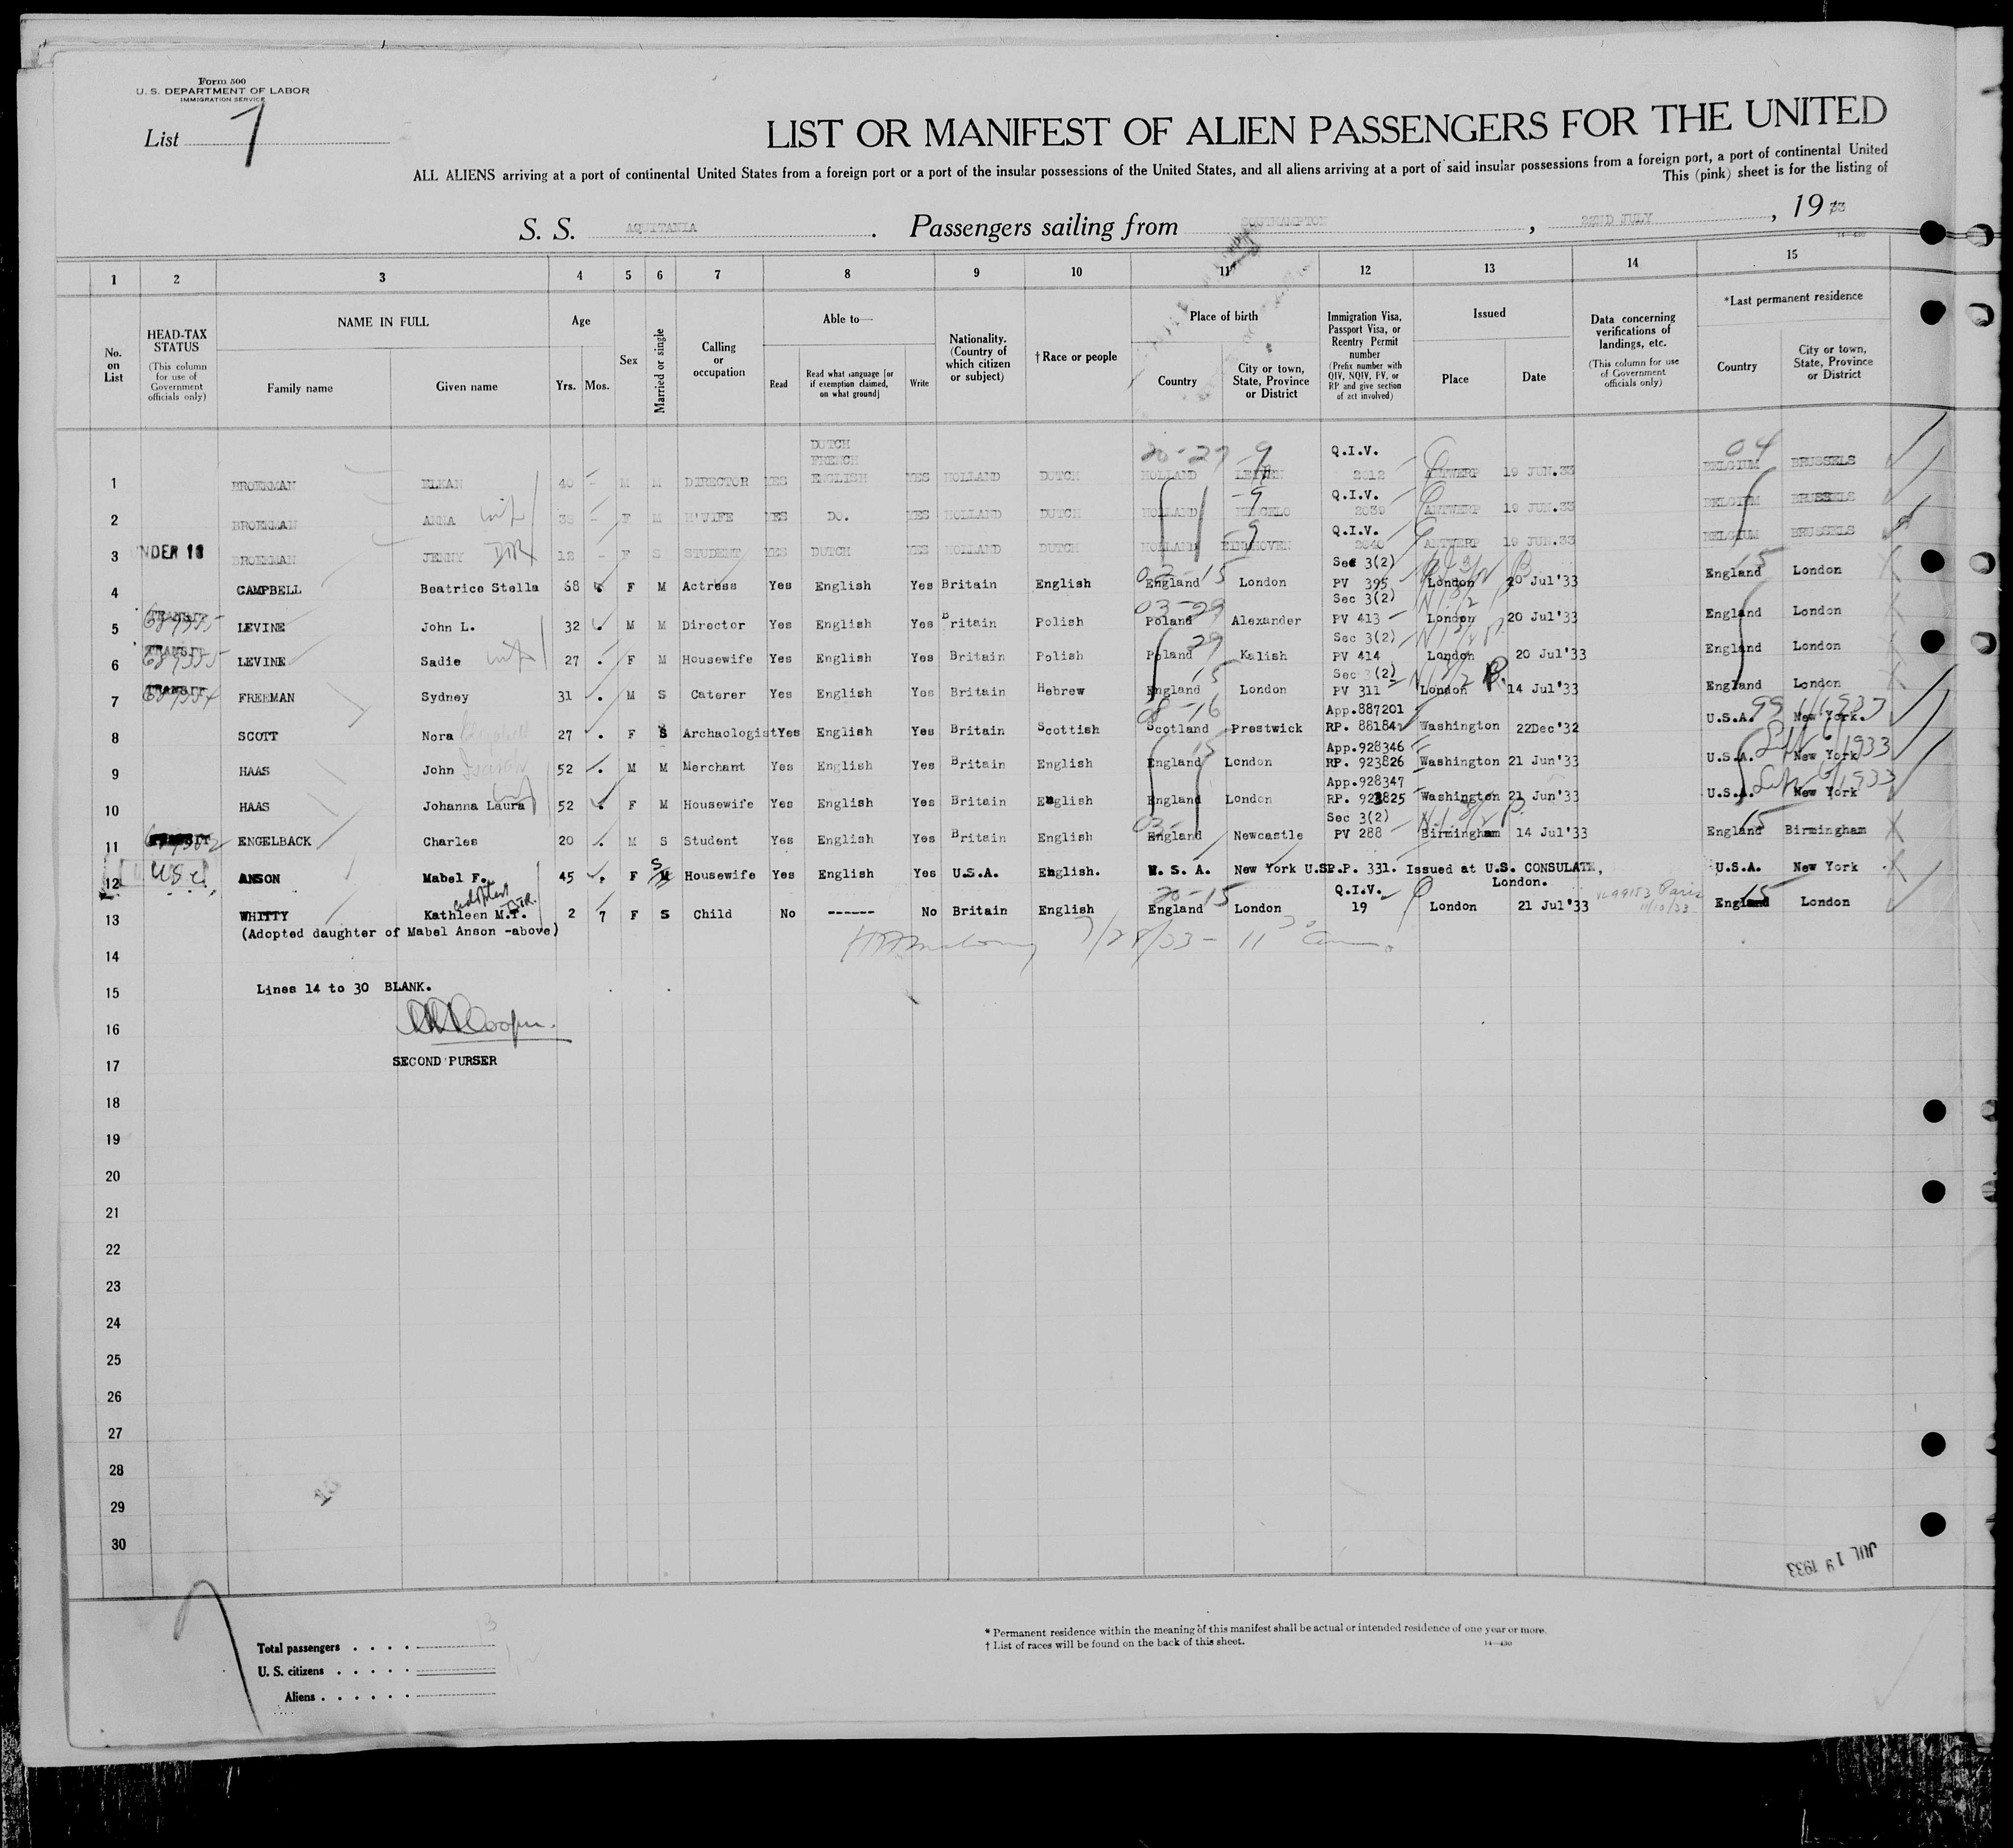 Form 500
U. S. DEPARTMENT OF LABOR
IMMIGRATION SERVICE
List 7
LIST OR MANIFEST OF ALIEN PASSENGERS FOR THE UNITED
ALL ALIENS arriving at a port of continental United States from a foreign port or a port of the insular possessions of the United States, and all aliens arriving at a port of said insular possessions from a foreign port, a port of continental United
This (pink) sheet is for the listing of
S. S. AQUITANIA. Passengers sailing from SOUTHAMPTON, 22ND JULY, 1933
14—430
1 2 3 4 5 6 7 8 9 10 11 12 13 14 15
No. on List
HEAD-TAX STATUS (This column for use of Government officials only)
NAME IN FULL Family name Given name
Age Yrs. Mos.
Sex
Married or single
Calling or occupation
Able to— Read Read what language [or if exemption claimed, on what ground] Write
Nationality. (Country of which citizen or subject)
†Race or people
Place of birth Country City or town, State, Province or District
Immigration Visa, Passport Visa, or Reentry Permit number (Prefix number with QIV, NQIV, PV, or RP and give section of act involved)
Issued Place Date
Data concerning verifications of landings, etc. (This column for use of Government officials only)
*Last permanent residence Country City or town, State, Province or District
DUTCH 20-27 9 Q.I.V. 04
FRENCH
1 BROEKMAN ELKAN 40 - M M DIRECTOR YES ENGLISH YES HOLLAND DUTCH HOLLAND 2612 ANTWERP 19 JUN.33 BELGIUM BRUSSELS
9 Q.I.V.
2 BROEKMAN ANNA wife - F M H'WIFE YES DO. YES HOLLAND DUTCH HOLLAND HENGELO 2639 ANTWERP 19 JUN.33 BELGIUM BRUSSELS
9 Q.I.V.
3 UNDER 16 BROEKMAN JENNY DTR 12 - F S STUDENT YES DUTCH YES HOLLAND DUTCH HOLLAND EINDHOVEN 2640 ANTWERP 19 JUN.33 BELGIUM BRUSSELS
Sec 3(2) 15
4 CAMPBELL Beatrice Stella 68 F M Actress Yes English Yes Britain English England London PV 395 London 20 Jul'33 England London
03-29 Sec 3(2)
5 TRANSIT LEVINE John L. 32 M M Director Yes English Yes Britain Polish Poland Alexander PV 413 London 20 Jul'33 England London
29 Sec 3(2)
6 TRANSIT LEVINE Sadie wife 27 . F M Housewife Yes English Yes Britain Polish Poland Kalish PV 414 London 20 Jul'33 England London
15 Sec 3(2)
7 TRANSIT FREEMAN Sydney 31 . M S Caterer Yes English Yes Britain Hebrew England London PV 311 London 14 Jul'33 England London
08-16 App.887201 99
8 SCOTT Nora Elizabeth 27 . F S Archaologist Yes English Yes Britain Scottish Scotland Prestwick RP. 88184 Washington 22Dec'32 U.S.A. New York.
15 App.928346 1933
9 HAAS John 52 . M M Merchant Yes English Yes Britain English England London RP. 923826 Washington 21 Jun'33 U.S.A. New York
App.928347 1933
10 HAAS Johanna Laura wife 52 . F M Housewife Yes English Yes Britain English England London RP. 923825 Washington 21 Jun'33 U.S.A. New York
03- Sec 3(2) 15
11 ENGELBACK Charles 20 . M S Student Yes English Yes Britain English England Newcastle PV 288 Birmingham 14 Jul'33 England Birmingham
12 U.S.C. ANSON Mabel F. 45 . F S M Housewife Yes English Yes U.S.A. English. U. S. A. New York U.SP.P. 331. Issued at U.S. CONSULATE, London. U.S.A. New York
adopted DTR. 20-15 Q.I.V. Paris 15
13 WHITTY Kathleen M.T. 2 7 F S Child No ------ No Britain English England London 19 London 21 Jul'33 11/10/33 England London
(Adopted daughter of Mabel Anson -above)
7/28/33 - 11
14
15 Lines 14 to 30 BLANK.
16 Cooper.
17 SECOND PURSER
18
19
20
21
22
23
24
25
26
27
28
29
30
JUL 19 1933
Total passengers . . . . 13
U. S. citizens . . . . . 1
Aliens . . . . . . 12
* Permanent residence within the meaning of this manifest shall be actual or intended residence of one year or more.
† List of races will be found on the back of this sheet. 14—430